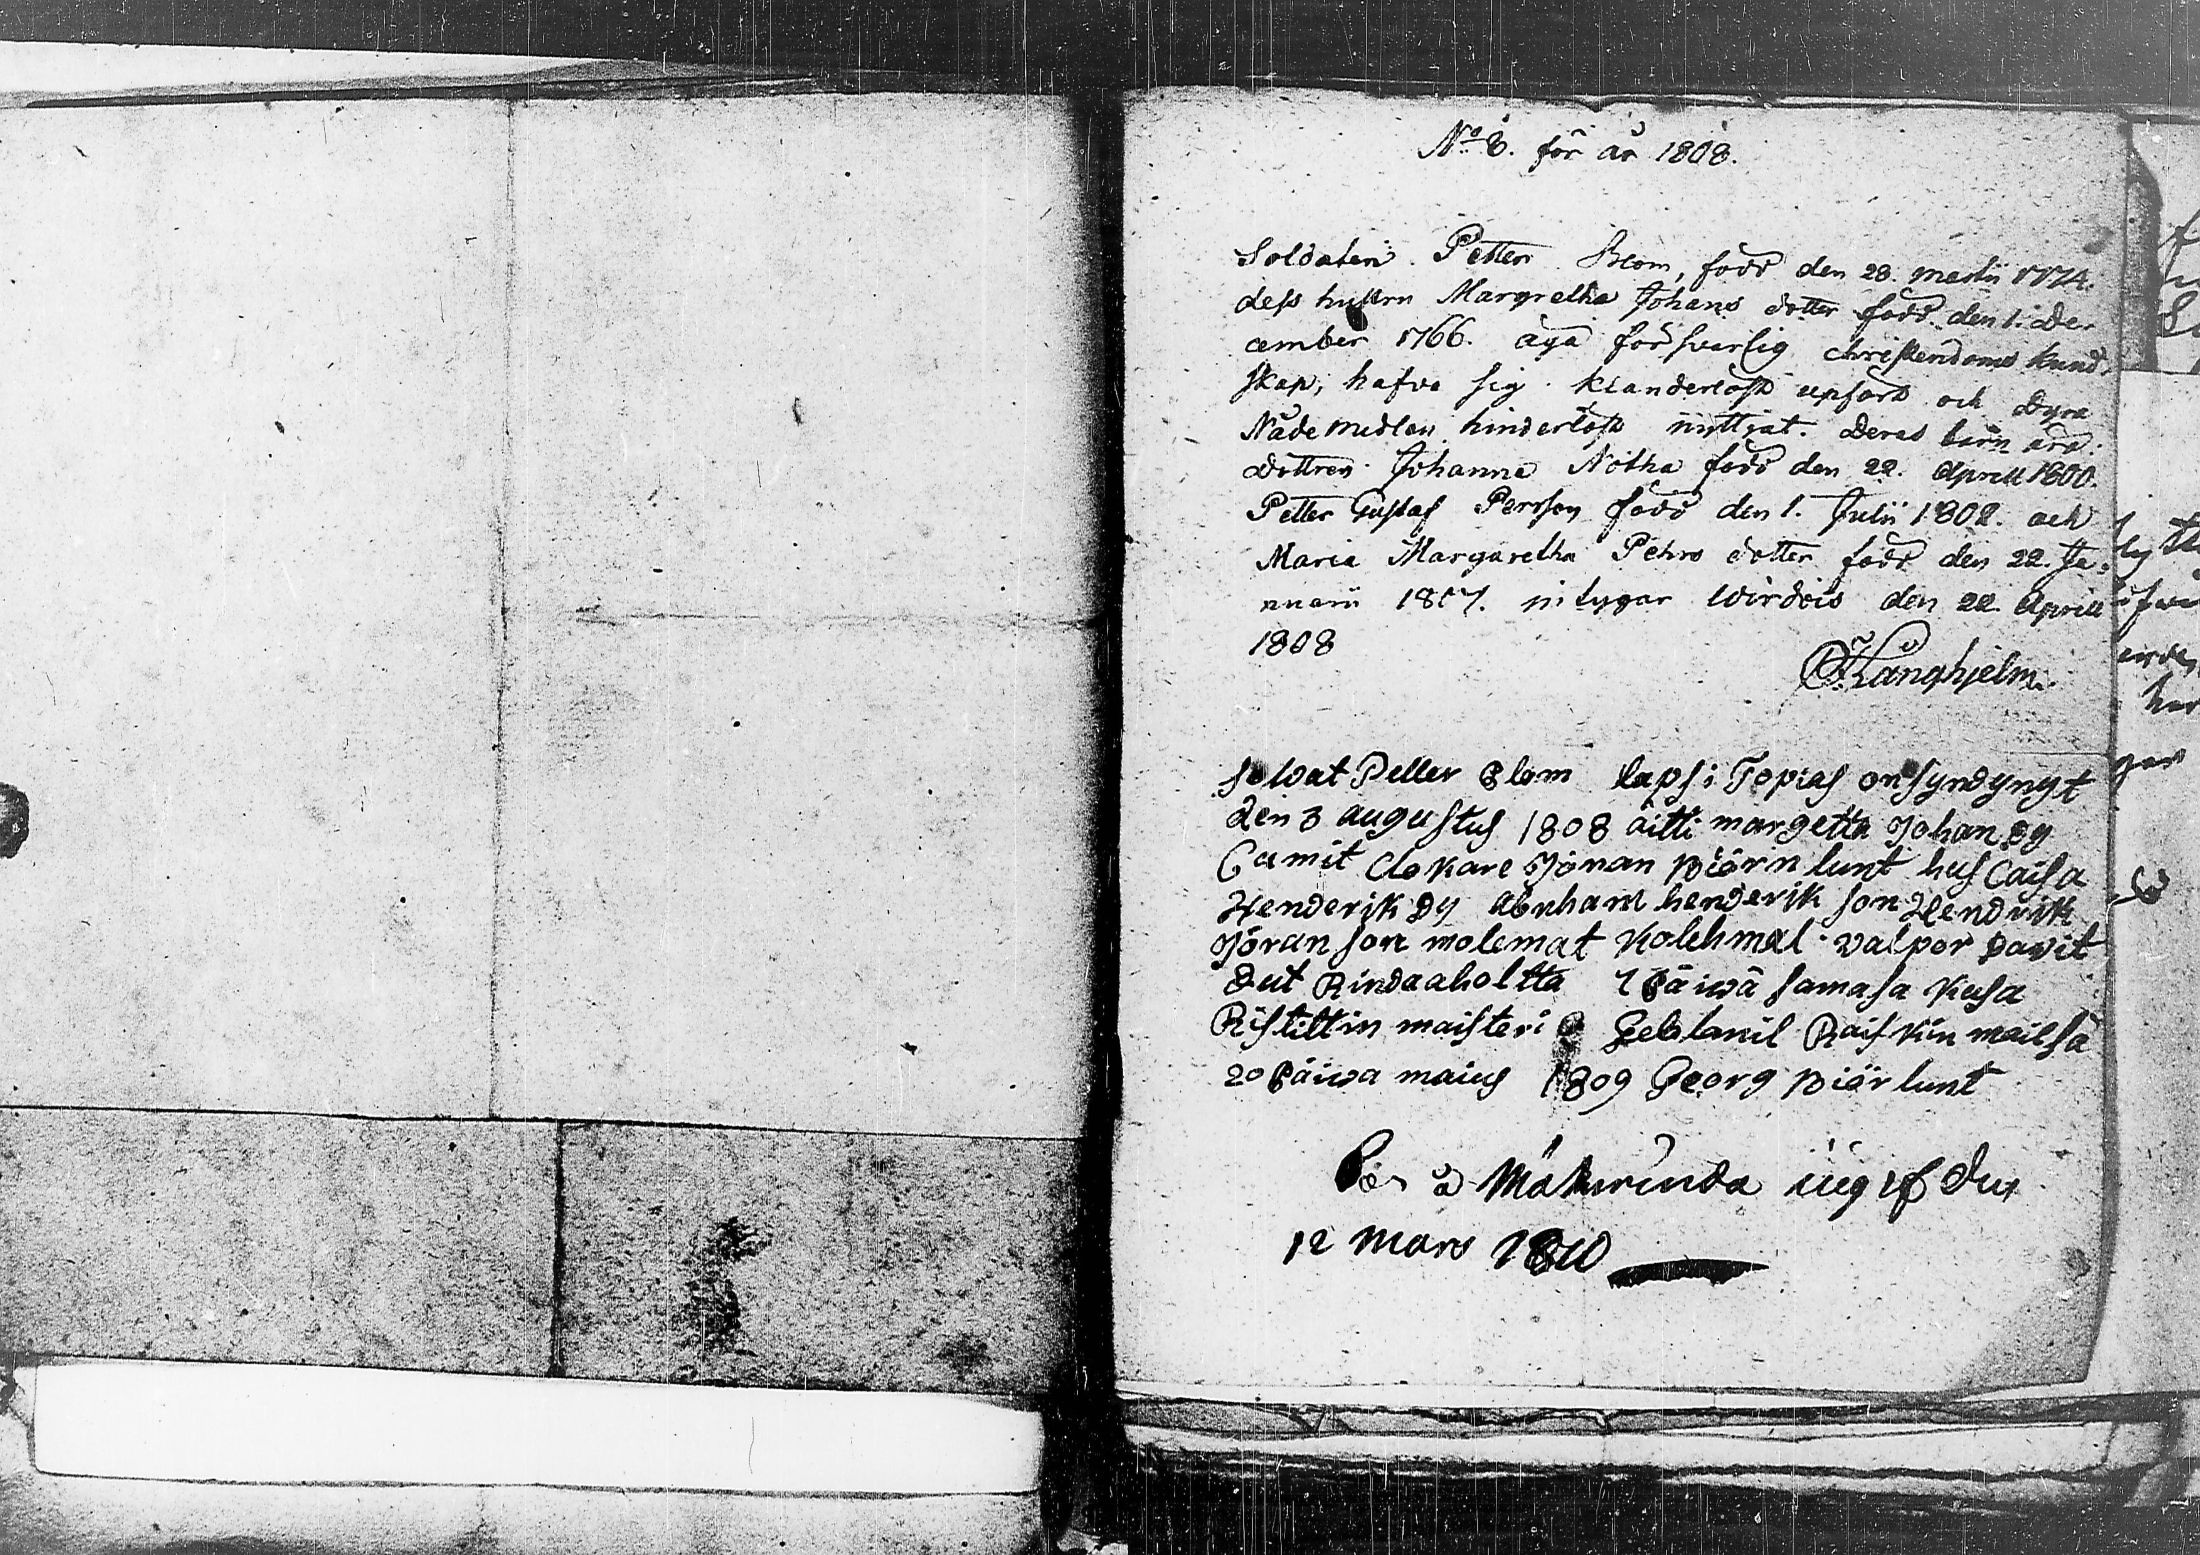 No 8. för år 1808.
Soldaten Petter Blom, född den 28. Martii 1774.
dess hustru Margretha Johans dotter född den 1. De-
cember 1766. äga försvarlig christendoms kund-
skap, hafva sig klanderlöst upfört och dyra
Nådemedlen hinderlöst nyttjat. Deras barn äro:
dottren Johanna född den 22. Aprill 1800.
Petter Gustaf Persson född den 1. Julii 1802. och
Maria Margaretha Pehrs dotter född den 22. Ja-
nuarii 1807. intygar Wirdois den 22 Aprill
1808
Kånghjelm
Soldat Petter Blom lapsi Topias on syndynyt
den 3 augustus 1808 äitti margetta Johan Dy
Cumit Clokare Jöran Biörn lunt hus Caisa
Henderik Dy abraham henderik son Hendrik
Jöran son molemat Kolehmal
20 Päiwa maius 1809 Georg Biör lunt
Ristittin maisteri Raiskin
12 Mars 1810